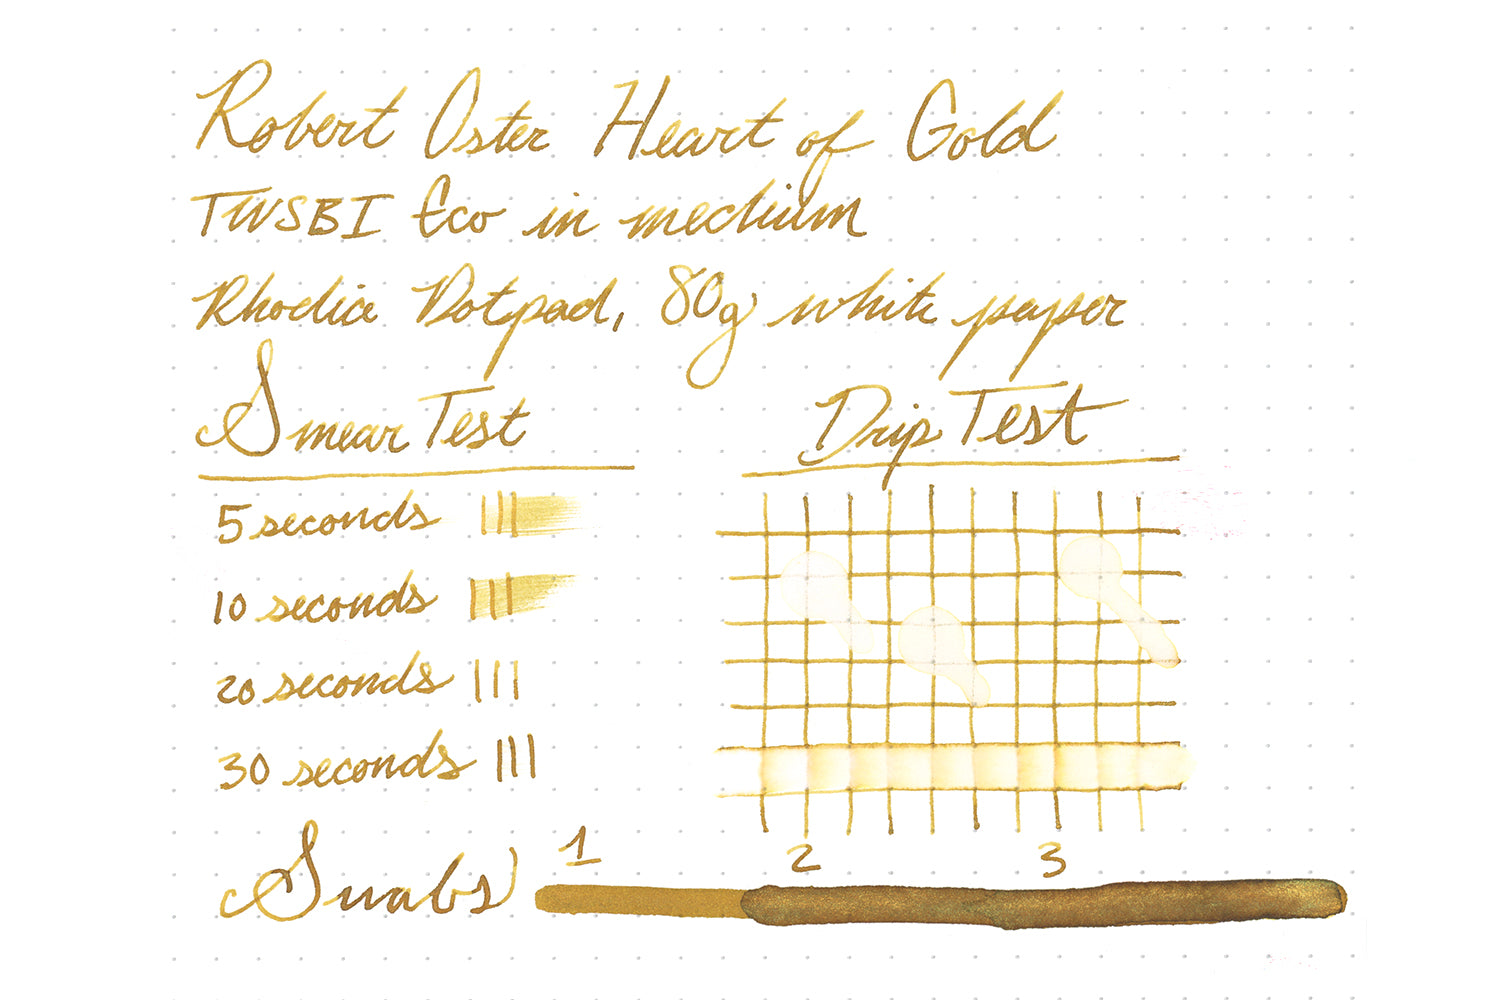 Robert Oster Heart of Gold
TWSBI Eco in medium
Rhodia Dotpad, 80g white paper
Smear Test
5 seconds
10 seconds
20 seconds
30 seconds
Drip Test
Swabs
1 2 3